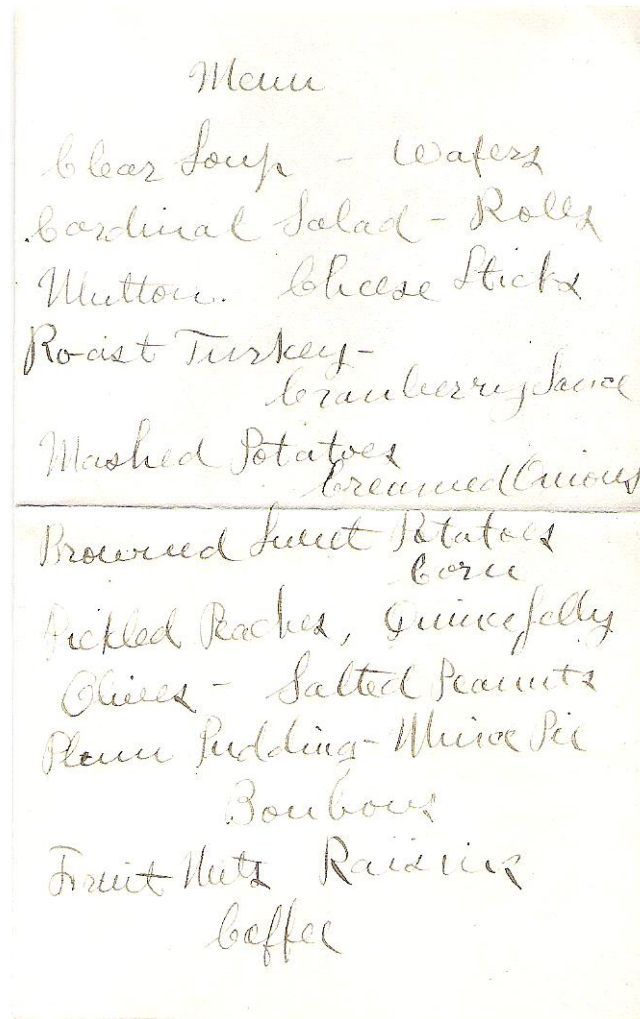 Menu
Clear Soup - Wafers
Cardinal Salad - Rolls
Mutton. Cheese Sticks
Roast Turkey-
Cranberry Sauce
Mashed Potatoes
Creamed Onions
Browned Sweet Potatoes
Corn
Pickled Peaches, Quince Jelly
Olives - Salted Peanuts
Plum Pudding - Mince Pie
Bonbons
Fruit Nuts Raisins
Coffee